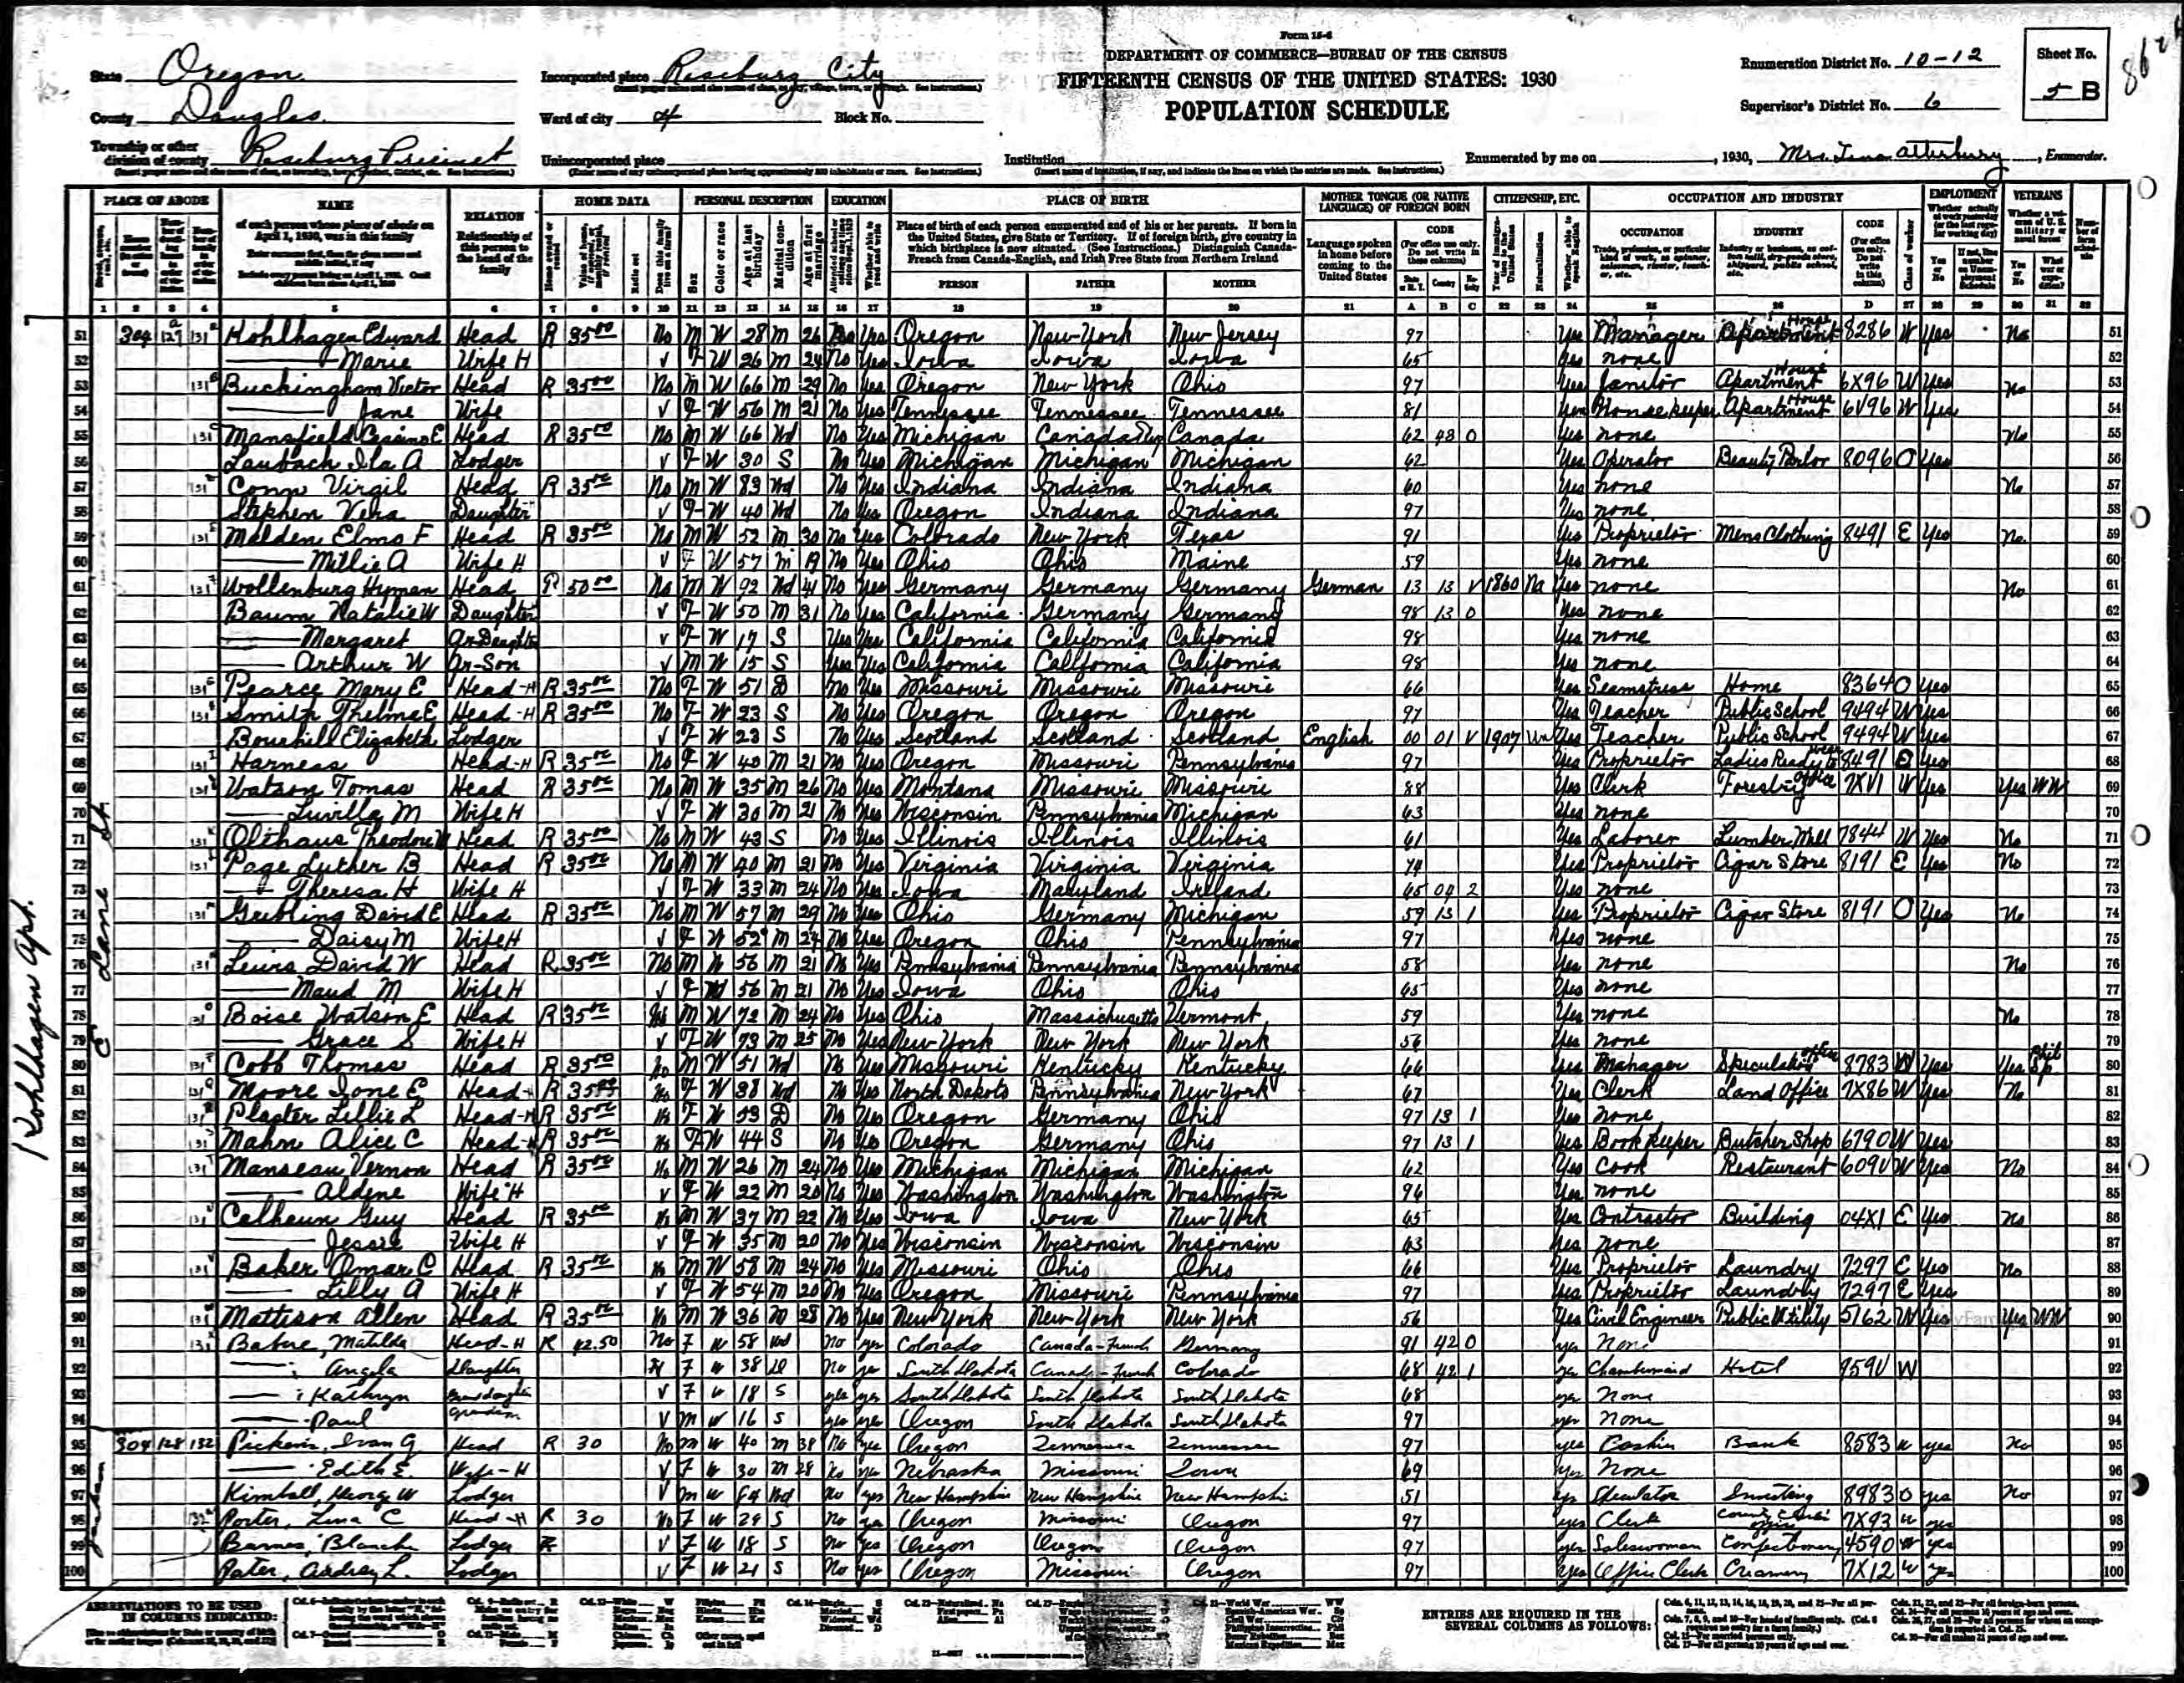 Form 15-6
DEPARTMENT OF COMMERCE—BUREAU OF THE CENSUS
FIFTEENTH CENSUS OF THE UNITED STATES: 1930
POPULATION SCHEDULE
State Oregon
County Douglas
Township or other division of county Roseburg Precinct
Incorporated place Roseburg City
Ward of city 4 Block No.
Unincorporated place
Institution
Enumeration District No. 10-12
Supervisor's District No. 6
Sheet No. 5 B
Enumerated by me on , 1930, Mrs. Atterbury , Enumerator.
PLACE OF ABODE NAME RELATION HOME DATA PERSONAL DESCRIPTION EDUCATION PLACE OF BIRTH MOTHER TONGUE (OR NATIVE LANGUAGE) OF FOREIGN BORN CITIZENSHIP, ETC. OCCUPATION AND INDUSTRY EMPLOYMENT VETERANS
of each person whose place of abode on April 1, 1930, was in this family
Relationship of this person to the head of the family
Place of birth of each person enumerated and of his or her parents. If born in the United States, give State or Territory. If of foreign birth, give country in which birthplace is now situated. (See Instructions.) Distinguish Canada-French from Canada-English, and Irish Free State from Northern Ireland
Language spoken in home before coming to the United States
PERSON FATHER MOTHER CODE OCCUPATION INDUSTRY CODE
Kohlhagen Apt.
E Lane St
51 304 131 Kohlhagen Edward Head R 35.00 No M W 28 M 26 No Yes Oregon New York New Jersey 97 Yes Manager Apartment House 8286 W Yes No 51
52 Marie Wife H V F W 26 M 24 No Yes Iowa Iowa Iowa 65 Yes none 52
53 131 Buckingham Victor Head R 35.00 No M W 66 M 29 No Yes Oregon New York Ohio 97 Yes Janitor Apartment House 6X96 W Yes No 53
54 Jane Wife V F W 56 M 21 No Yes Tennessee Tennessee Tennessee 81 Yes Housekeeper Apartment House 6V96 W Yes 54
55 131 Mansfield E Head R 35.00 No M W 66 Wd No Yes Michigan Canada Canada 62 48 0 Yes none No 55
56 Laubach Ila A Lodger V F W 30 S No Yes Michigan Michigan Michigan 62 Yes Operator Beauty Parlor 8096 O Yes 56
57 131 Conn Virgil Head R 35.00 No M W 83 Wd No Yes Indiana Indiana Indiana 60 Yes none No 57
58 Stephen Vera Daughter V F W 40 Wd No Yes Oregon Indiana Indiana 97 Yes none 58
59 131 Malden Elmo F Head R 35.00 No M W 52 M 30 No Yes Colorado New York Texas 91 Yes Proprietor Mens Clothing 8491 E Yes No 59
60 Millie A Wife H V F W 57 M 19 No Yes Ohio Ohio Maine 59 Yes none 60
61 131 Wollenburg Hyman Head R 50.00 No M W 92 Wd 41 No Yes Germany Germany Germany German 13 13 V 1860 Na Yes none No 61
62 Baum Natalie W Daughter V F W 50 M 31 No Yes California Germany Germany 98 13 0 Yes none 62
63 Margaret Gr-Daughter V F W 17 S Yes Yes California California California 98 Yes none 63
64 Arthur W Gr-Son V M W 15 S Yes Yes California California California 98 Yes none 64
65 131 Pearce Mary E Head-H R 35.00 No F W 51 D No Yes Missouri Missouri Missouri 66 Yes Seamstress Home 8364 O Yes 65
66 131 Smith Thelma E Head-H R 35.00 No F W 23 S No Yes Oregon Oregon Oregon 97 Yes Teacher Public School 9494 W Yes 66
67 Bourhill Elizabeth Lodger V F W 23 S No Yes Scotland Scotland Scotland English 00 01 V 1907 Un Yes Teacher Public School 9494 W Yes 67
68 131 Harness Head-H R 35.00 No F W 40 M 21 No Yes Oregon Missouri Pennsylvania 97 Yes Proprietor Ladies Ready to wear 8491 E Yes 68
69 131 Watson Tomas Head R 35.00 No M W 35 M 26 No Yes Montana Missouri Missouri 88 Yes Clerk Forestry Office 7XV1 W Yes Yes WW 69
70 Luvilla M Wife H V F W 30 M 21 No Yes Wisconsin Pennsylvania Michigan 63 Yes none 70
71 131 Olthaus Theodore W Head R 35.00 No M W 43 S No Yes Illinois Illinois Illinois 61 Yes Laborer Lumber Mill 7844 W Yes No 71
72 131 Page Luther B Head R 35.00 No M W 40 M 31 No Yes Virginia Virginia Virginia 74 Yes Proprietor Cigar Store 8191 E Yes No 72
73 Theresa H Wife H V F W 33 M 24 No Yes Iowa Maryland Ireland 65 04 2 Yes none 73
74 131 Geibling David E Head R 35.00 No M W 57 M 29 No Yes Ohio Germany Michigan 59 13 1 Yes Proprietor Cigar Store 8191 O Yes No 74
75 Daisy M Wife H V F W 52 M 24 No Yes Oregon Ohio Pennsylvania 97 Yes none 75
76 131 Lewis David W Head R 35.00 No M W 56 M 21 No Yes Pennsylvania Pennsylvania Pennsylvania 58 Yes none No 76
77 Maud M Wife H V F W 56 M 21 No Yes Iowa Ohio Ohio 65 Yes none 77
78 131 Boise Watson E Head R 35.00 No M W 72 M 24 No Yes Ohio Massachusetts Vermont 59 Yes none No 78
79 Grace S Wife H V F W 73 M 25 No Yes New York New York New York 56 Yes none 79
80 131 Cobb Thomas Head R 35.00 No M W 51 Wd No Yes Missouri Kentucky Kentucky 66 Yes Manager Speculators office 8783 W Yes Yes Phil Sp. 80
81 131 Moore Ione E Head-H R 35.00 No F W 38 Wd No Yes North Dakota Pennsylvania New York 67 Yes Clerk Land Office 7X86 W Yes No 81
82 131 Plaster Lillie L Head-H R 35.00 No F W 53 D No Yes Oregon Germany Ohio 97 13 1 Yes none 82
83 131 Mahn Alice C Head-H R 35.00 No F W 44 S No Yes Oregon Germany Ohio 97 13 1 Yes Book keeper Butcher Shop 6790 W Yes 83
84 131 Manseau Vernon Head R 35.00 No M W 26 M 24 No Yes Michigan Michigan Michigan 62 Yes Cook Restaurant 609V W Yes No 84
85 Aldene Wife H V F W 22 M 20 No Yes Washington Washington Washington 96 Yes none 85
86 131 Calhoun Guy Head R 35.00 No M W 37 M 22 No Yes Iowa Iowa New York 65 Yes Contractor Building 04X1 E Yes No 86
87 Jessie Wife H V F W 35 M 20 No Yes Wisconsin Wisconsin Wisconsin 63 Yes none 87
88 131 Baker Omar C Head R 35.00 No M W 58 M 24 No Yes Missouri Ohio Ohio 66 Yes Proprietor Laundry 7297 E Yes No 88
89 Lilly A Wife H V F W 54 M 20 No Yes Oregon Missouri Pennsylvania 97 Yes Proprietor Laundry 7297 E Yes 89
90 131 Mattison Allen Head R 35.00 No M W 36 M 28 No Yes New York New York New York 56 Yes Civil Engineer Public Utility 5162 W Yes Yes WW 90
91 131 Babue, Matilda Head-H R 42.50 No F W 58 Wd No yes Colorado Canada-French Germany 91 42 0 yes None 91
92 Angela Daughter V F W 38 D No yes South Dakota Canada-French Colorado 68 42 1 yes Chambermaid Hotel 959V W 92
93 Kathryn Granddaughter V F W 18 S yes yes South Dakota South Dakota South Dakota 68 yes None 93
94 Paul Grandson V M W 16 S yes yes Oregon South Dakota South Dakota 97 yes None 94
Jackson
95 304 128 132 Pickens, Ivan G Head R 30 No M W 40 M 38 No yes Oregon Tennessee Tennessee 97 yes Cashier Bank 8583 W yes No 95
96 Edith E. Wife-H V F W 30 M 28 No yes Nebraska Missouri Iowa 69 yes None 96
97 Kimball, George W Lodger V M W 64 Wd No yes New Hampshire New Hampshire New Hampshire 51 yes Speculator Investing 8983 O yes No 97
98 132 Porter, Lena C Head-H R 30 No F W 29 S No yes Oregon Missouri Oregon 97 yes Clerk County Clerk's office 7X93 W yes 98
99 Barnes, Blanche Lodger V F W 18 S No yes Oregon Oregon Oregon 97 yes Saleswoman Confectionery 4590 W yes 99
100 Pater, Audrey L. Lodger V F W 21 S No yes Oregon Missouri Oregon 97 yes Office Clerk Creamery 7X12 W yes 100
ABBREVIATIONS TO BE USED IN COLUMNS INDICATED:
ENTRIES ARE REQUIRED IN THE SEVERAL COLUMNS AS FOLLOWS: